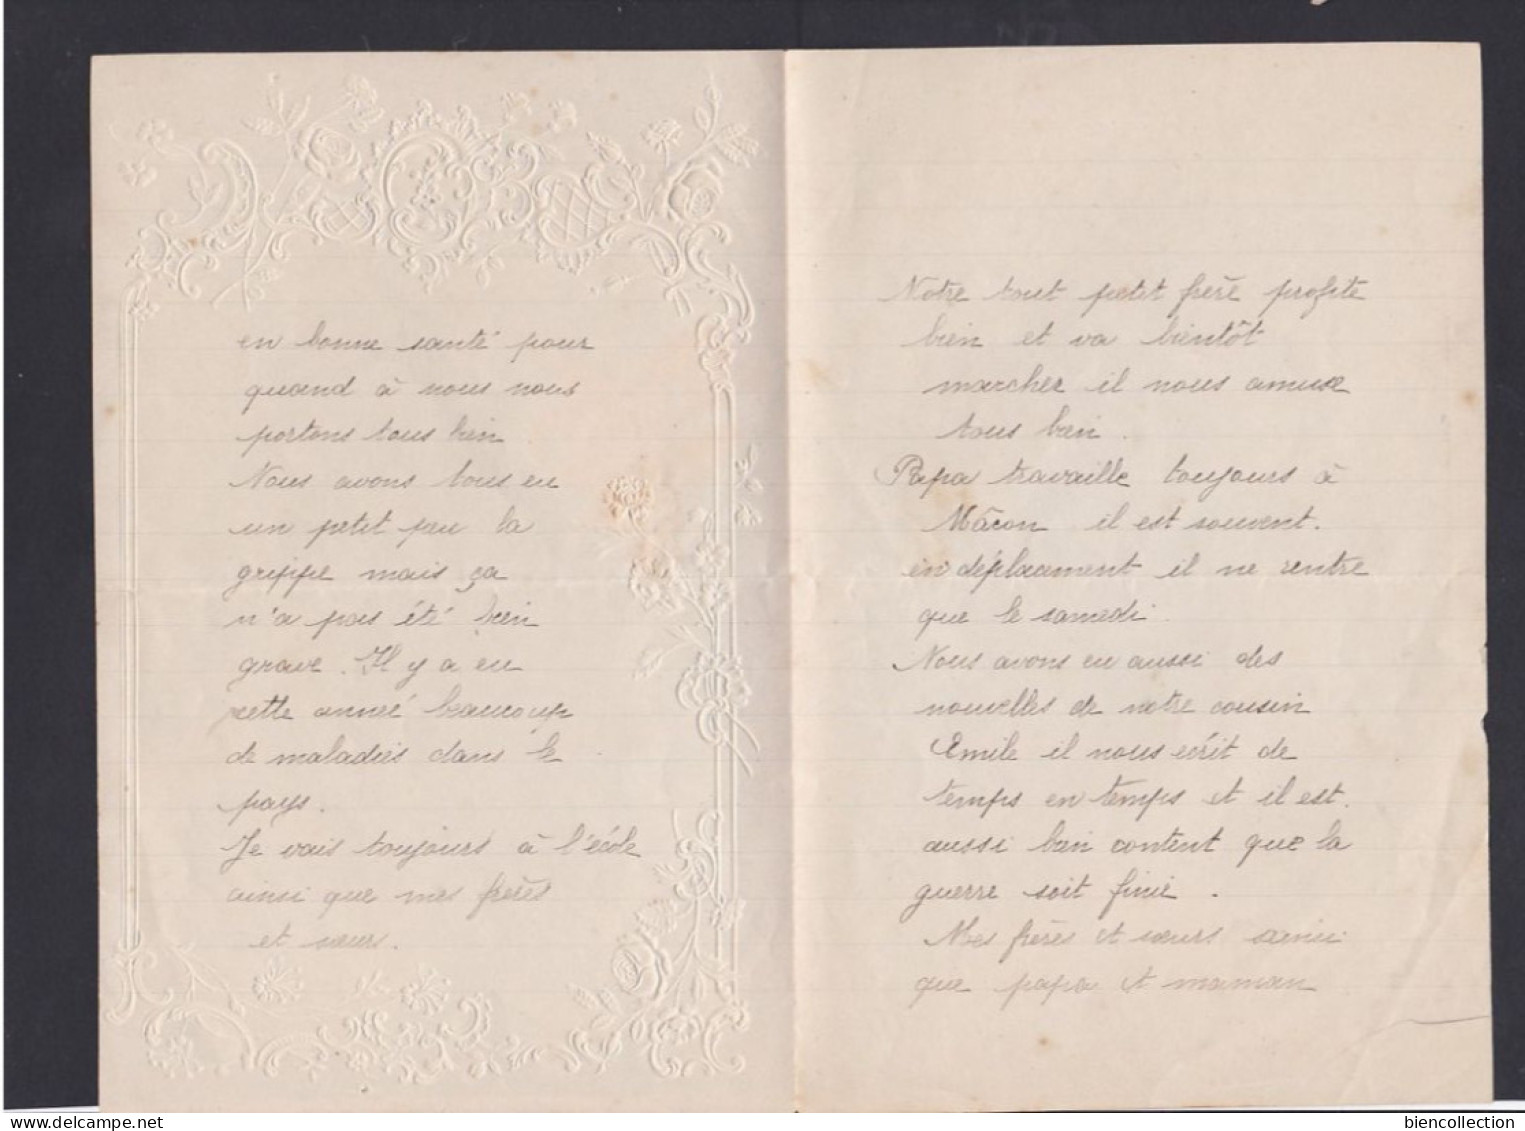 en bonne santé pour
quand à nous nous
portons tous bien
Nous avons tous eu
un petit peu la
grippe mais ça
n'a pas été bien
grave. Il y a eu
cette année beaucoup
de maladies dans le
pays.
Je vais toujours à l'école
ainsi que mes frères
et sœurs.
Notre tout petit frère profite
bien et va bientôt
marcher il nous amuse
tous bien.
Papa travaille toujours à
Mâcon il est souvent.
en déplacement il ne rentre
que le samedi.
Nous avons eu aussi des
nouvelles de notre cousin
Emile il nous écrit de
temps en temps et il est.
aussi bien content que la
guerre soit finie.
Mes frères et sœurs ainsi
que papa et maman
biencollection